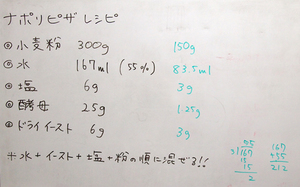 ナポリピザ レシピ
小麦粉 300g 150g
水 167ml (55%) 83.5ml
塩 6g 3g
酵母 25g 1.25g
ドライイースト 6g 3g
※水+イースト+塩+粉の順に混ぜる!!
167
212